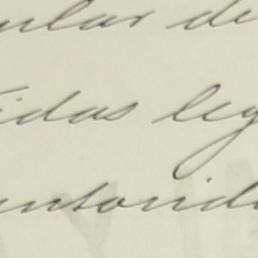 ular de
idas leg
untorid